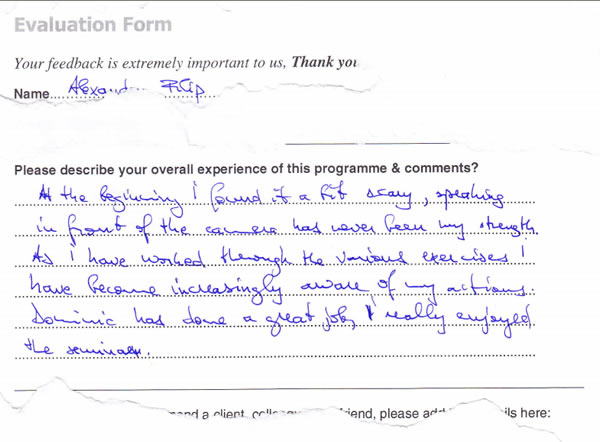 Evaluation Form
Your feedback is extremely important to us, Thank you
Name.......... Filip
Please describe your overall experience of this programme & comments?
At the beginning I found it a bit scary, speaking
in front of the camera has never been my strength.
As I have worked through the various exercises I
have become increasingly aware of my actions.
Dominic has done a great job, I really enjoyed
the seminar.
end a client, friend, please add ils here: